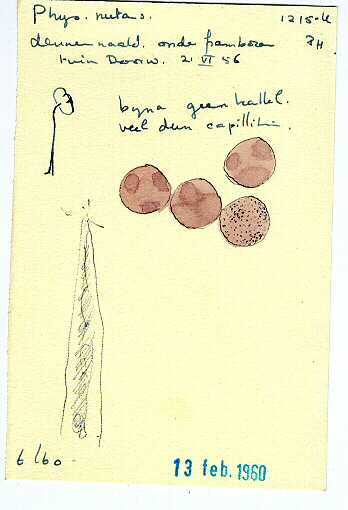 Phys. nutans. 1215-k
dennennaald. onder frambozen PH
tuin Doorw. 21 VI 56
byna geen kalk.
veel dun capillitium.
6/60
13 feb. 1960